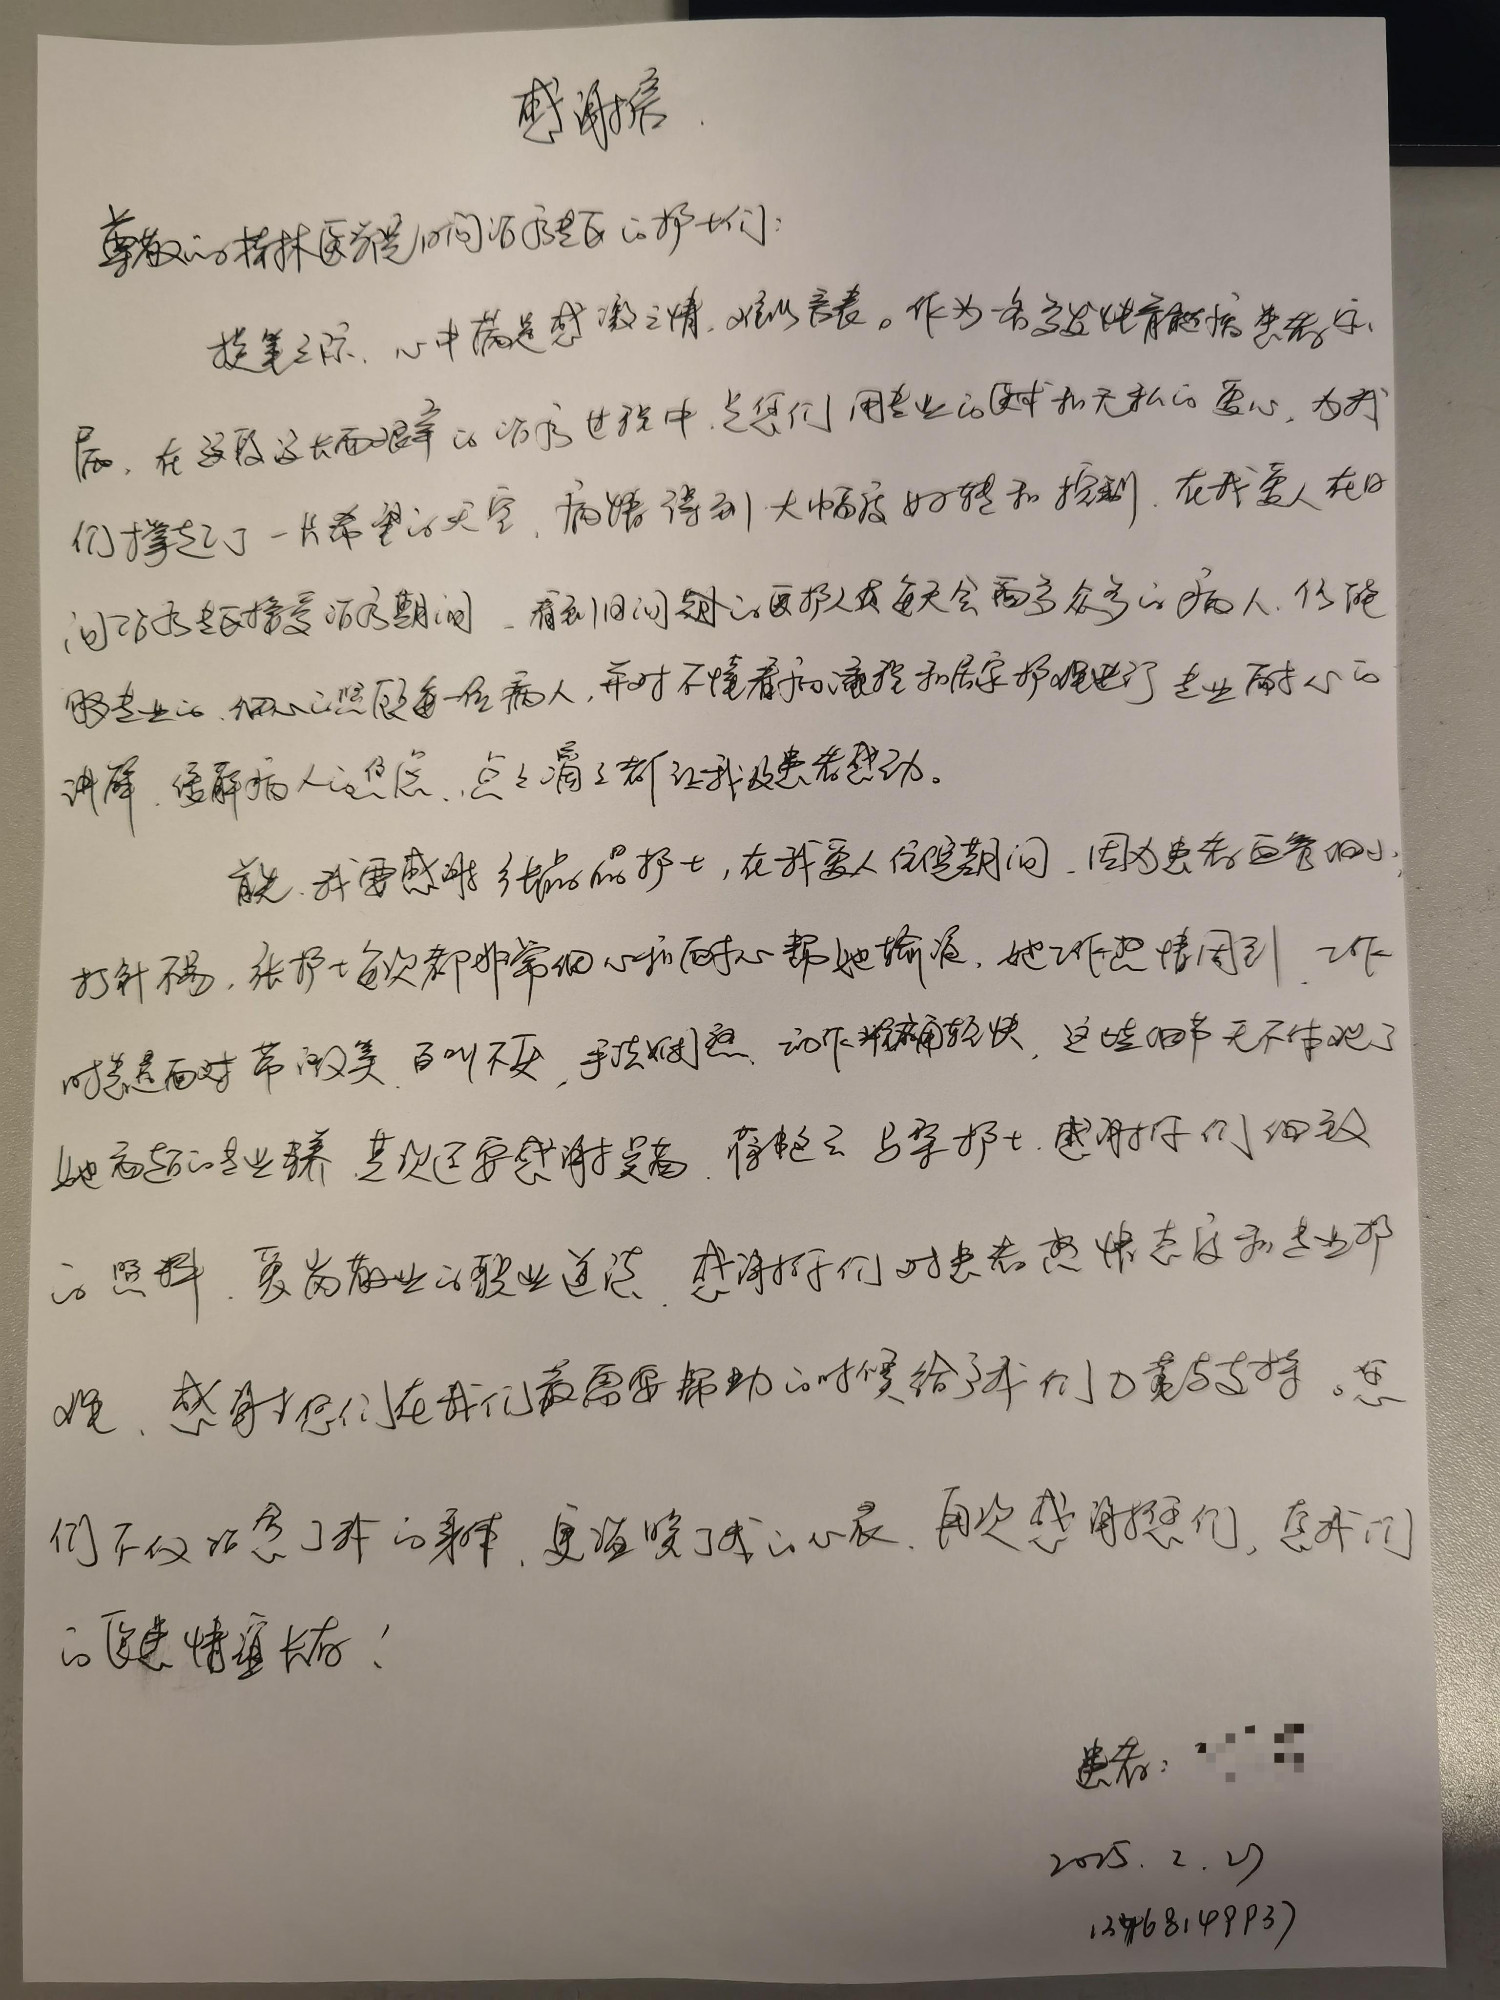 感谢信.
尊敬的桂林医学院日间治疗专区的护士们:
提笔之际、心中满是感激之情,难以言表。作为一名多发性骨髓病患者家
属,在这段漫长而艰辛的治疗过程中.是您们用专业的医术和无私的爱心,为我
们撑起了一片希望的天空,病情得到大幅度好转和控制.在我爱人在日
间治疗专区接受治疗期间、看到日间的医护人员每天会面对众多的病人,仍能
够专业的、细心的照顾每一位病人,并对不懂看病流程和居家护理进行了专业耐心的
讲解、缓解病人的焦虑、点点滴滴都让我及患者感动。
首先、我要感谢张晶晶护士,在我爱人住院期间、因为患者血管细小,
打针不易,张护士每次都非常细心和耐心帮她输液,她工作热情周到、工作
时总是面对带微笑、百问不厌,手法娴熟、动作轻快,这些细节无不体现了
她高超的专业素养.其次还要感谢 护士.感谢你们细致
的照料、爱岗敬业的职业道德、感谢你们对患者热情态度和专业护
理、感谢您们在我们最需要帮助的时候给了我们力量与支持。您
们不仅治愈了我的身体,更温暖了我的心灵、再次感谢您们,愿我们
的医患情谊长存!
患者:
2025.2.27